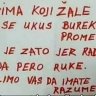 IMA KOJI ŽALE
SE UKUS BUREK
PROME
JE ZATO JER RAD
DA PERO RUKE.
LIMO VAS DA IMATE
RAZUME